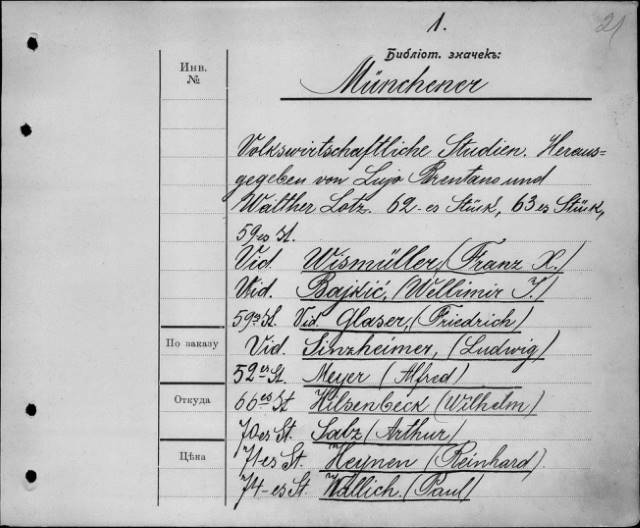 1.
21
Библіот. значекъ:
Инв.
№
Münchener
Volkswirtschaftliche Studien. Heraus=
gegeben von Lujo Brentano und
Walther Lotz. 62-es Stück, 63 es Stück,
59es St.
Vid. Wismüller, (Franz X.)
Vid. Bajkić, (Wellimir J.)
59es St. Vid. Glaser, (Friedrich)
По заказу
Vid. Sinzheimer, (Ludwig)
52es St. Meyer (Alfred)
Откуда
66es St. Hilsenbeck (Wilhelm)
70es St. Salz (Arthur)
Цѣна
71es St. Heynen (Reinhard)
74-es St. Wallich. (Paul)